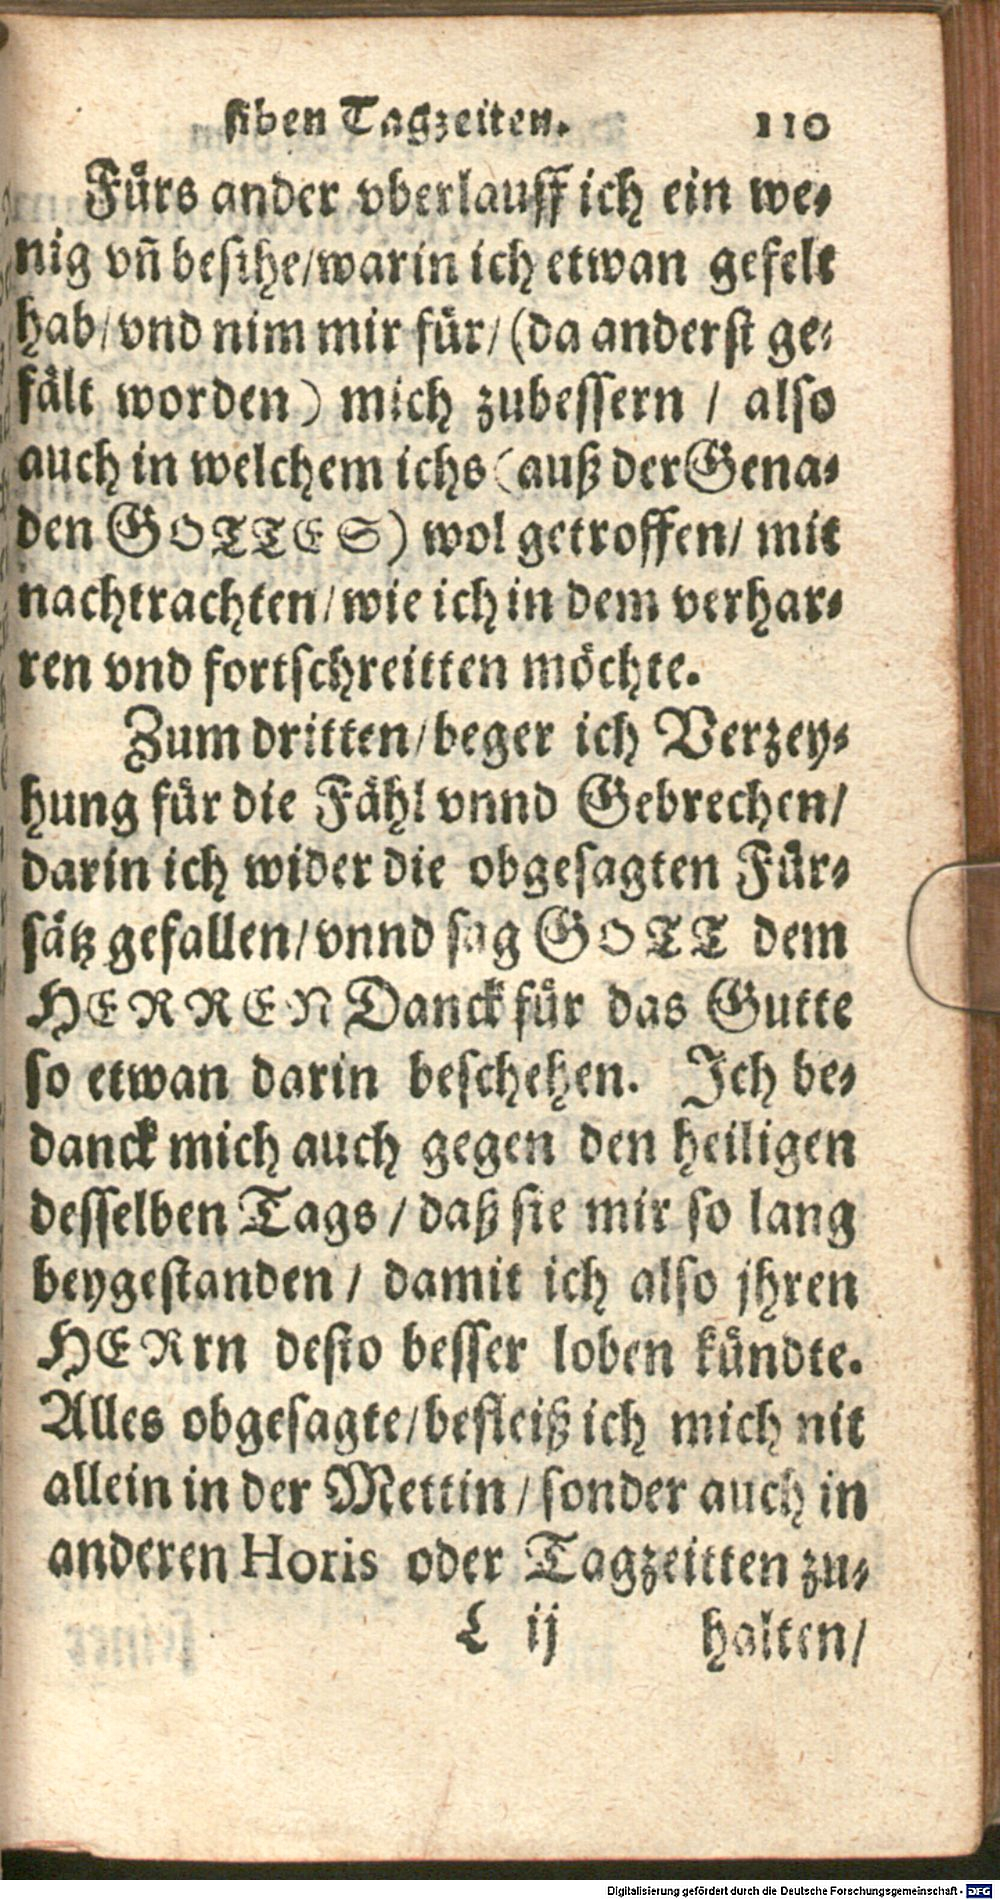 siben Tagzeiten. 110
Fürs ander vberlauff ich ein we-
nig vñ besihe/warin ich etwan gefelt
hab/vnd nim mir für/(da anderst ge-
fält worden) mich zubessern / also
auch in welchem ichs (auß der Gena-
den GOTTES) wol getroffen/ mit
nachtrachten/wie ich in dem verhar-
ren vnd fortschreitten möchte.
Zum dritten/beger ich Verzey-
hung für die Fähl vnnd Gebrechen/
darin ich wider die obgesagten Für-
sätz gefallen/vnnd sag GOTT dem
HERREN Danck für das Gutte
so etwan darin beschehen. Ich be-
danck mich auch gegen den heiligen
desselben Tags / daß sie mir so lang
beygestanden / damit ich also jhren
HERrn desto besser loben kündte.
Alles obgesagte/befleiß ich mich nit
allein in der Mettin / sonder auch in
anderen Horis oder Tagzeitten zu-
L ij halten/
Digitalisierung gefördert durch die Deutsche Forschungsgemeinschaft - DFG